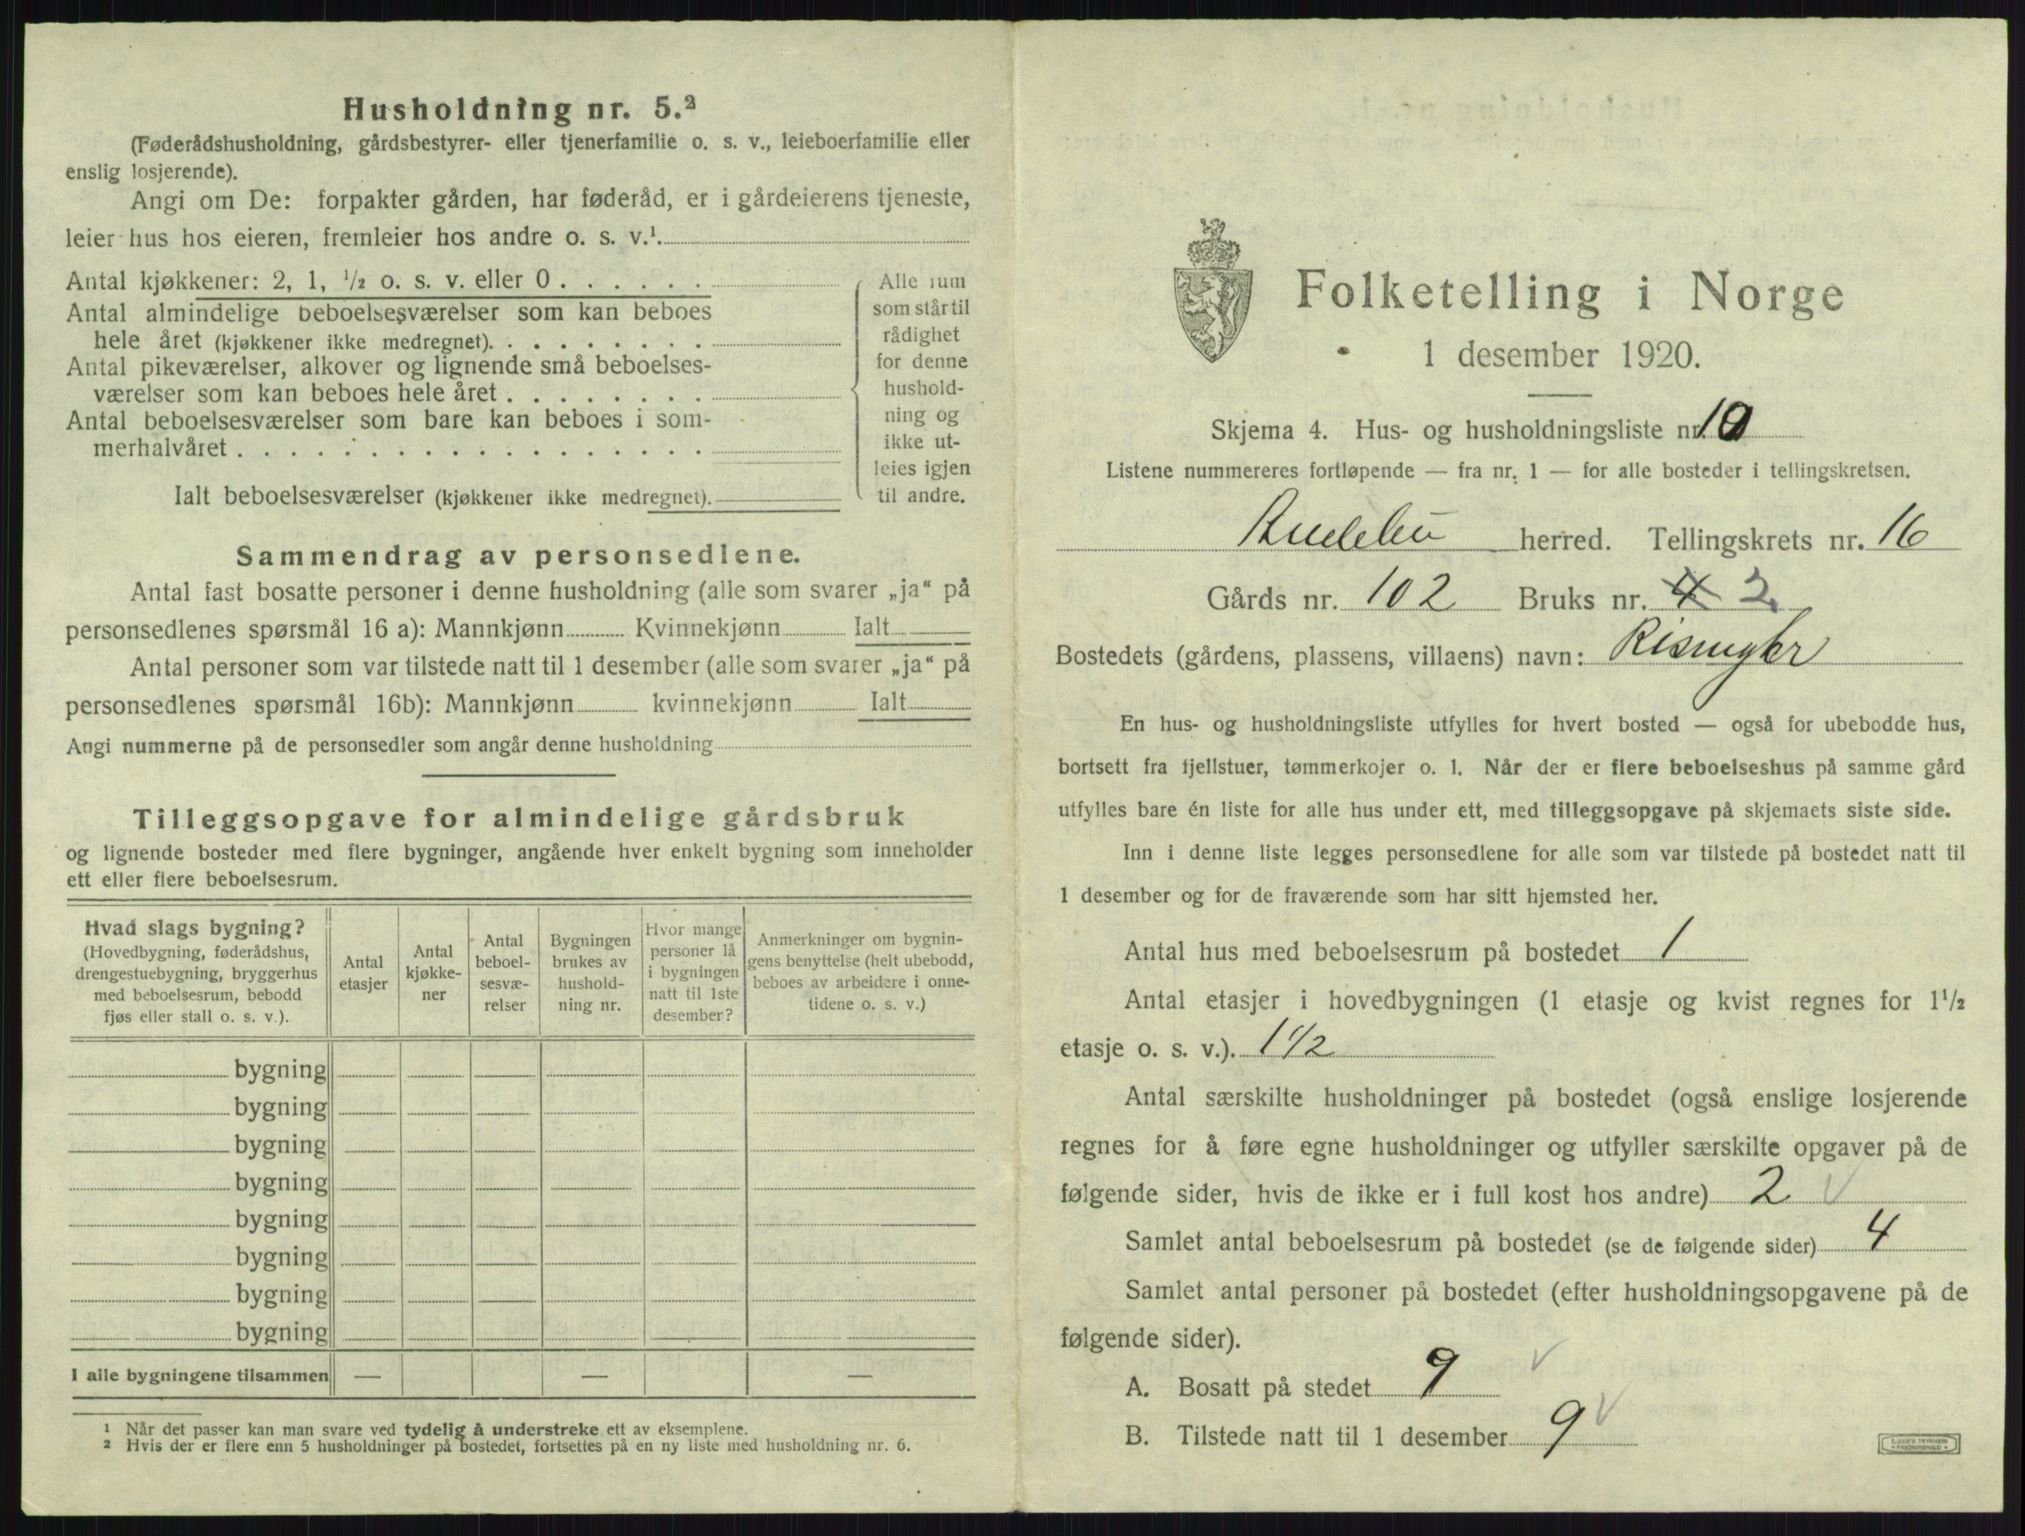 Husholdning nr. 5.²
(Føderådshusholdning, gårdsbestyrer- eller tjenerfamilie o. s. v., leieboerfamilie eller
enslig losjerende).
Angi om De: forpakter gården, har føderåd, er i gårdeierens tjeneste,
leier hus hos eieren, fremleier hos andre o. s. v.¹
Antal kjøkkener: 2, 1, ½ o. s. v. eller 0 . . . . . .
Antal almindelige beboelsesværelser som kan beboes
hele året (kjøkkener ikke medregnet). . . . . . . . .
Antal pikeværelser, alkover og lignende små beboelses-
værelser som kan beboes hele året . . . . . . . .
Antal beboelsesværelser som bare kan beboes i som-
merhalvåret . . . . . . . . . . . . . . . . . .
Ialt beboelsesværelser (kjøkkener ikke medregnet).
Alle rum
som står til
rådighet
for denne
hushold-
ning og
ikke ut-
leies igjen
til andre.
Sammendrag av personsedlene.
Antal fast bosatte personer i denne husholdning (alle som svarer „ja“ på
personsedlenes spørsmål 16 a): Mannkjønn Kvinnekjønn Ialt
Antal personer som var tilstede natt til 1 desember (alle som svarer „ja“ på
personsedlenes spørsmål 16b): Mannkjønn kvinnekjønn Ialt
Angi nummerne på de personsedler som angår denne husholdning
Tilleggsopgave for almindelige gårdsbruk
og lignende bosteder med flere bygninger, angående hver enkelt bygning som inneholder
ett eller flere beboelsesrum.
Hvad slags bygning?
(Hovedbygning, føderådshus,
drengestuebygning, bryggerhus
med beboelsesrum, bebodd
fjøs eller stall o. s. v.).
Antal
etasjer
Antal
kjøkke-
ner
Antal
beboel-
sesvæ-
relser
Bygningen
brukes av
hushold-
ning nr.
Hvor mange
personer lå
i bygningen
natt til 1ste
desember?
Anmerkninger om bygnin-
gens benyttelse (helt ubebodd,
beboes av arbeidere i onne-
tidene o. s. v.)
bygning
bygning
bygning
bygning
bygning
bygning
bygning
bygning
I alle bygningene tilsammen — — —
¹ Når det passer kan man svare ved tydelig å understreke ett av eksemplene.
² Hvis der er flere enn 5 husholdninger på bostedet, fortsettes på en ny liste med husholdning nr. 6.
Folketelling i Norge
1 desember 1920.
Skjema 4. Hus- og husholdningsliste nr. 10
Listene nummereres fortløpende — fra nr. 1 — for alle bosteder i tellingskretsen.
Andebu herred. Tellingskrets nr. 16
Gårds nr. 102 Bruks nr. 4 2
Bostedets (gårdens, plassens, villaens) navn:
En hus- og husholdningsliste utfylles for hvert bosted — også for ubebodde hus,
bortsett fra fjellstuer, tømmerkojer o. l. Når der er flere beboelseshus på samme gård
utfylles bare én liste for alle hus under ett, med tilleggsopgave på skjemaets siste side.
Inn i denne liste legges personsedlene for alle som var tilstede på bostedet natt til
1 desember og for de fraværende som har sitt hjemsted her.
Antal hus med beboelsesrum på bostedet 1
Antal etasjer i hovedbygningen (1 etasje og kvist regnes for 1½
etasje o. s. v.). 1½
Antal særskilte husholdninger på bostedet (også enslige losjerende
regnes for å føre egne husholdninger og utfyller særskilte opgaver på de
følgende sider, hvis de ikke er i full kost hos andre) 2
Samlet antal beboelsesrum på bostedet (se de følgende sider) 4
Samlet antal personer på bostedet (efter husholdningsopgavene på de
følgende sider).
A. Bosatt på stedet 9
B. Tilstede natt til 1 desember 9